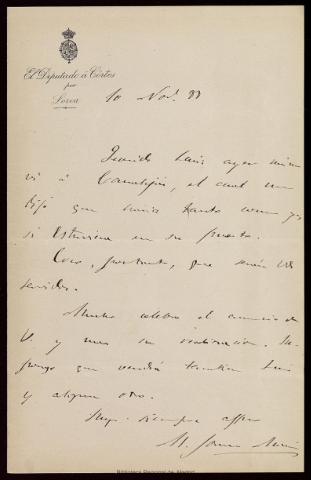 El Diputado á Córtes
por
Lorca
10 Nov. 88
Querido Luis ayer mismo
ví á Canalejas, el cual me
dijo que haría tanto como yo
si estuviera en su puesto.
Creo, por tanto, que serán Vds
servidos.
Mucho celebro el anuncio de
V. y mas su realización. Su-
pongo que vendrá tambien Luis
y alguno otro.
Suyo siempre affmo
Biblioteca Regional de Madrid